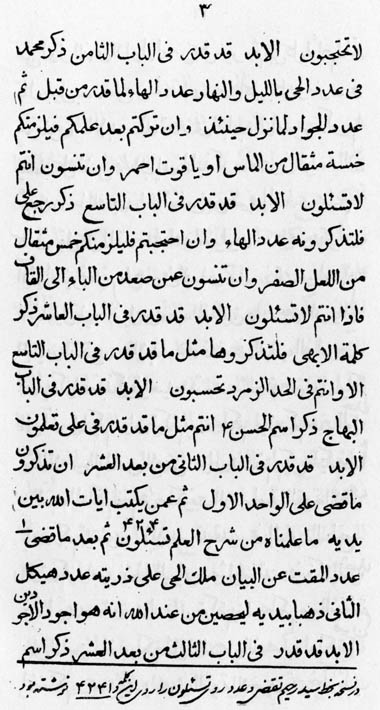 ٣
لاتحتجبون الابد قد قدر فى الباب الثامن ذكر محمد
فى عدد الحى بالليل والنهار عدد الهاء لما قدر من قبل ثم
عدد الجواد لما نزل حينئذ وان تركتم بعد علمكم فيلزمنكم
خمسة مثقال من الماس او ياقوت احمر وان تنسون انتم
لاتسئلون الابد قد قدر فى الباب التاسع ذكر رجع على
فلتذكرونه عدد الهاء وان احتجبتم فليلزمنكم خمس مثقال
من اللعل الصفر وان تنسون عمن صعد من الباء الى القاف
فاذا انتم لاتسئلون الابد قد قدر فى الباب العاشر ذكر
كلمة الابهى فلتذكروها مثل ما قد قدر فى الباب التاسع
الا وانتم فى الحد الزمرد تحسبون الابد قد قدر فى الباب
البهاج ذكر اسم الحسن ٤ انتم مثل ما قد قدر فى على تعلمون
الابد قد قدر فى الباب الثانى من بعد العشر ان تذكرون
ما قضى على الواحد الاول ثم عمن يكتب ايات الله بين
يديه ما علمناه من شرح العلم تسئلون ٤٢٤ ثم بعد ما قضى ١
عدد المقت عن البيان ملك الحى على ذريته عدد هيكل
الثانى ذهبا بيديه ليحصين من عند الله انه هو اجود الاجودين
الابد قد قدر فى الباب الثالث من بعد العشر ذكر اسم
در نسخه بخط سيد رحيم تقضى وعدد روى تسئلون را ٤٢٤١ نوشته بود